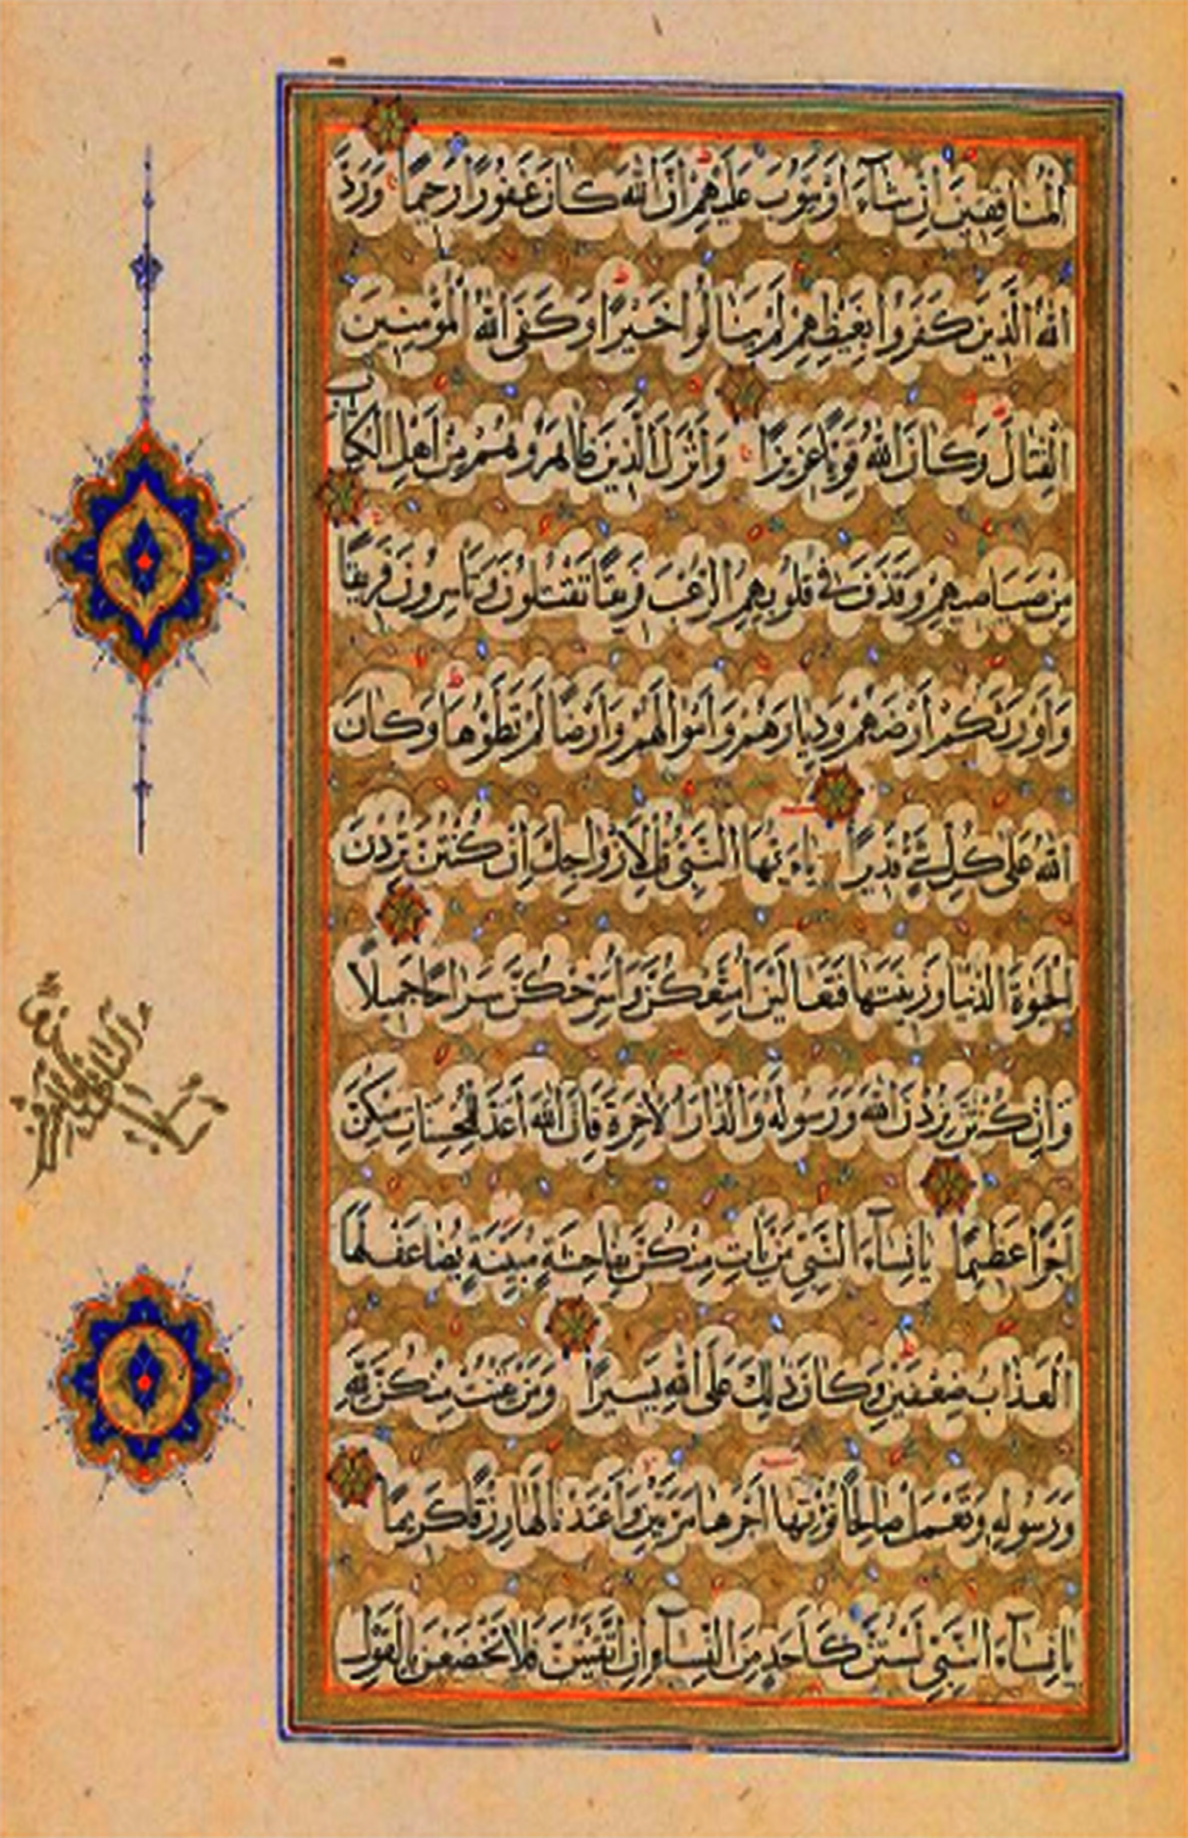 الْمُنَافِقِينَ اِنْ شَاۤءَ اَوْ يَتُوبَ عَلَيْهِمْ اِنَّ اللّٰهَ كَانَ غَفُورًا رَحِيمًا وَرَدَّ
اللّٰهُ الَّذِينَ كَفَرُوا بِغَيْظِهِمْ لَمْ يَنَالُوا خَيْرًا وَكَفَى اللّٰهُ الْمُؤْمِنِينَ
الْقِتَالَ وَكَانَ اللّٰهُ قَوِيًّا عَزِيزًا وَاَنْزَلَ الَّذِينَ ظَاهَرُوهُمْ مِنْ اَهْلِ الْكِتَابِ
مِنْ صَيَاصِيهِمْ وَقَذَفَ فِى قُلُوبِهِمُ الرُّعْبَ فَرِيقًا تَقْتُلُونَ وَتَأْسِرُونَ فَرِيقًا
وَاَوْرَثَكُمْ اَرْضَهُمْ وَدِيَارَهُمْ وَاَمْوَالَهُمْ وَاَرْضًا لَمْ تَطَؤُهَا وَكَانَ
اللّٰهُ عَلٰى كُلِّ شَىْءٍ قَدِيرًا يَاءَيُّهَا النَّبِىُّ قُلْ لِاَزْوَاجِكَ اِنْ كُنْتُنَّ تُرِدْنَ
الْحَيٰوةَ الدُّنْيَا وَزِينَتَهَا فَتَعَالَيْنَ اُمَتِّعْكُنَّ وَاُسَرِّحْكُنَّ سَرَاحًا جَمِيلًا
وَاِنْ كُنْتُنَّ تُرِدْنَ اللّٰهَ وَرَسُولَهُ وَالدَّارَ الْاٰخِرَةَ فَاِنَّ اللّٰهَ اَعَدَّ لِلْمُحْسِنَاتِ مِنْكُنَّ
اَجْرًا عَظِيمًا يَانِسَاۤءَ النَّبِىِّ مَنْ يَأْتِ مِنْكُنَّ بِفَاحِشَةٍ مُبَيِّنَةٍ يُضَاعَفْ لَهَا
الْعَذَابُ ضِعْفَيْنِ وَكَانَ ذٰلِكَ عَلَى اللّٰهِ يَسِيرًا وَمَنْ يَقْنُتْ مِنْكُنَّ لِلّٰهِ
وَرَسُولِهِ وَتَعْمَلْ صَالِحًا نُؤْتِهَا اَجْرَهَا مَرَّتَيْنِ وَاَعْتَدْنَا لَهَا رِزْقًا كَرِيمًا
يَانِسَاۤءَ النَّبِىِّ لَسْتُنَّ كَاَحَدٍ مِنَ النِّسَاۤءِ اِنِ اتَّقَيْتُنَّ فَلَا تَخْضَعْنَ بِالْقَوْلِ